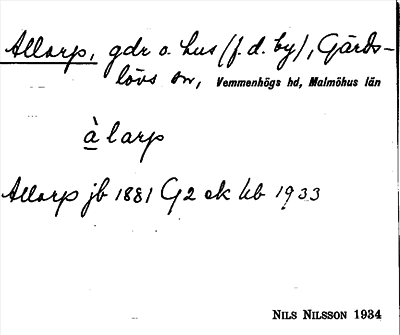 Allarp, gdr o. hus (f.d. by), Gärds-
lövs sn, Vemmenhögs hd, Malmöhus län
àlarp
Allarp jb 1881 G2 ek kb 1933
NILS NILSSON 1934